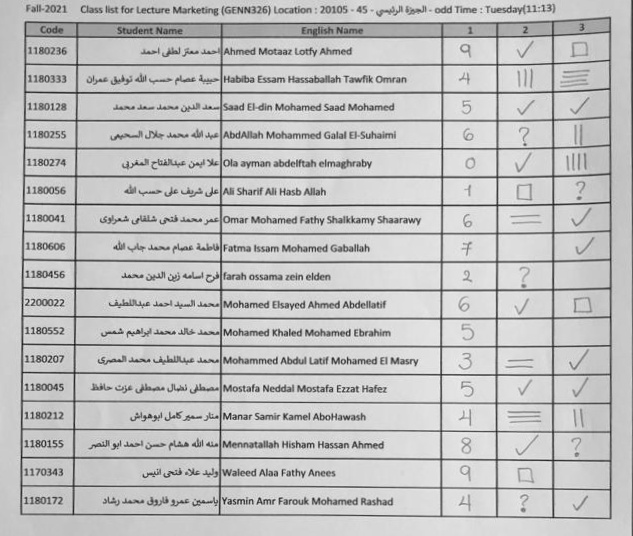 Fall-2021 Class list for Lecture Marketing (GENN326) Location : 20105 - 45 - الجيزة الرئيسي - odd Time : Tuesday(11:13)
Code Student Name English Name 1 2 3
1180236 احمد معتز لطفى احمد Ahmed Motaaz Lotfy Ahmed 9 ✓ □
1180333 حبيبة عصام حسب الله توفيق عمران Habiba Essam Hassaballah Tawfik Omran 4 ||| ☰
1180128 سعد الدين محمد سعد محمد Saad El-din Mohamed Saad Mohamed 5 ✓ ✓
1180255 عبد الله محمد جلال السحيمى AbdAllah Mohammed Galal El-Suhaimi 6 ? ||
1180274 علا ايمن عبدالفتاح المغربى Ola ayman abdelftah elmaghraby 0 ✓ ||||
1180056 على شريف على حسب الله Ali Sharif Ali Hasb Allah 1 □ ?
1180041 عمر محمد فتحى شلقامى شعراوى Omar Mohamed Fathy Shalkkamy Shaarawy 6 = ✓
1180606 فاطمة عصام محمد جاب الله Fatma Issam Mohamed Gaballah 7 ✓
1180456 فرح اسامه زين الدين محمد farah ossama zein elden 2 ?
2200022 محمد السيد احمد عبداللطيف Mohamed Elsayed Ahmed Abdellatif 6 ✓ □
1180552 محمد خالد محمد ابراهيم شمس Mohamed Khaled Mohamed Ebrahim 5
1180207 محمد عبداللطيف محمد المصرى Mohammed Abdul Latif Mohamed El Masry 3 = ✓
1180045 مصطفى نضال مصطفى عزت حافظ Mostafa Neddal Mostafa Ezzat Hafez 5 ✓ ✓
1180212 منار سمير كامل ابوهواش Manar Samir Kamel AboHawash 4 ☰ ||
1180155 منه الله هشام حسن احمد ابو النصر Mennatallah Hisham Hassan Ahmed 8 ✓ ?
1170343 وليد علاء فتحى انيس Waleed Alaa Fathy Anees 9 □
1180172 ياسمين عمرو فاروق محمد رشاد Yasmin Amr Farouk Mohamed Rashad 4 ? ✓